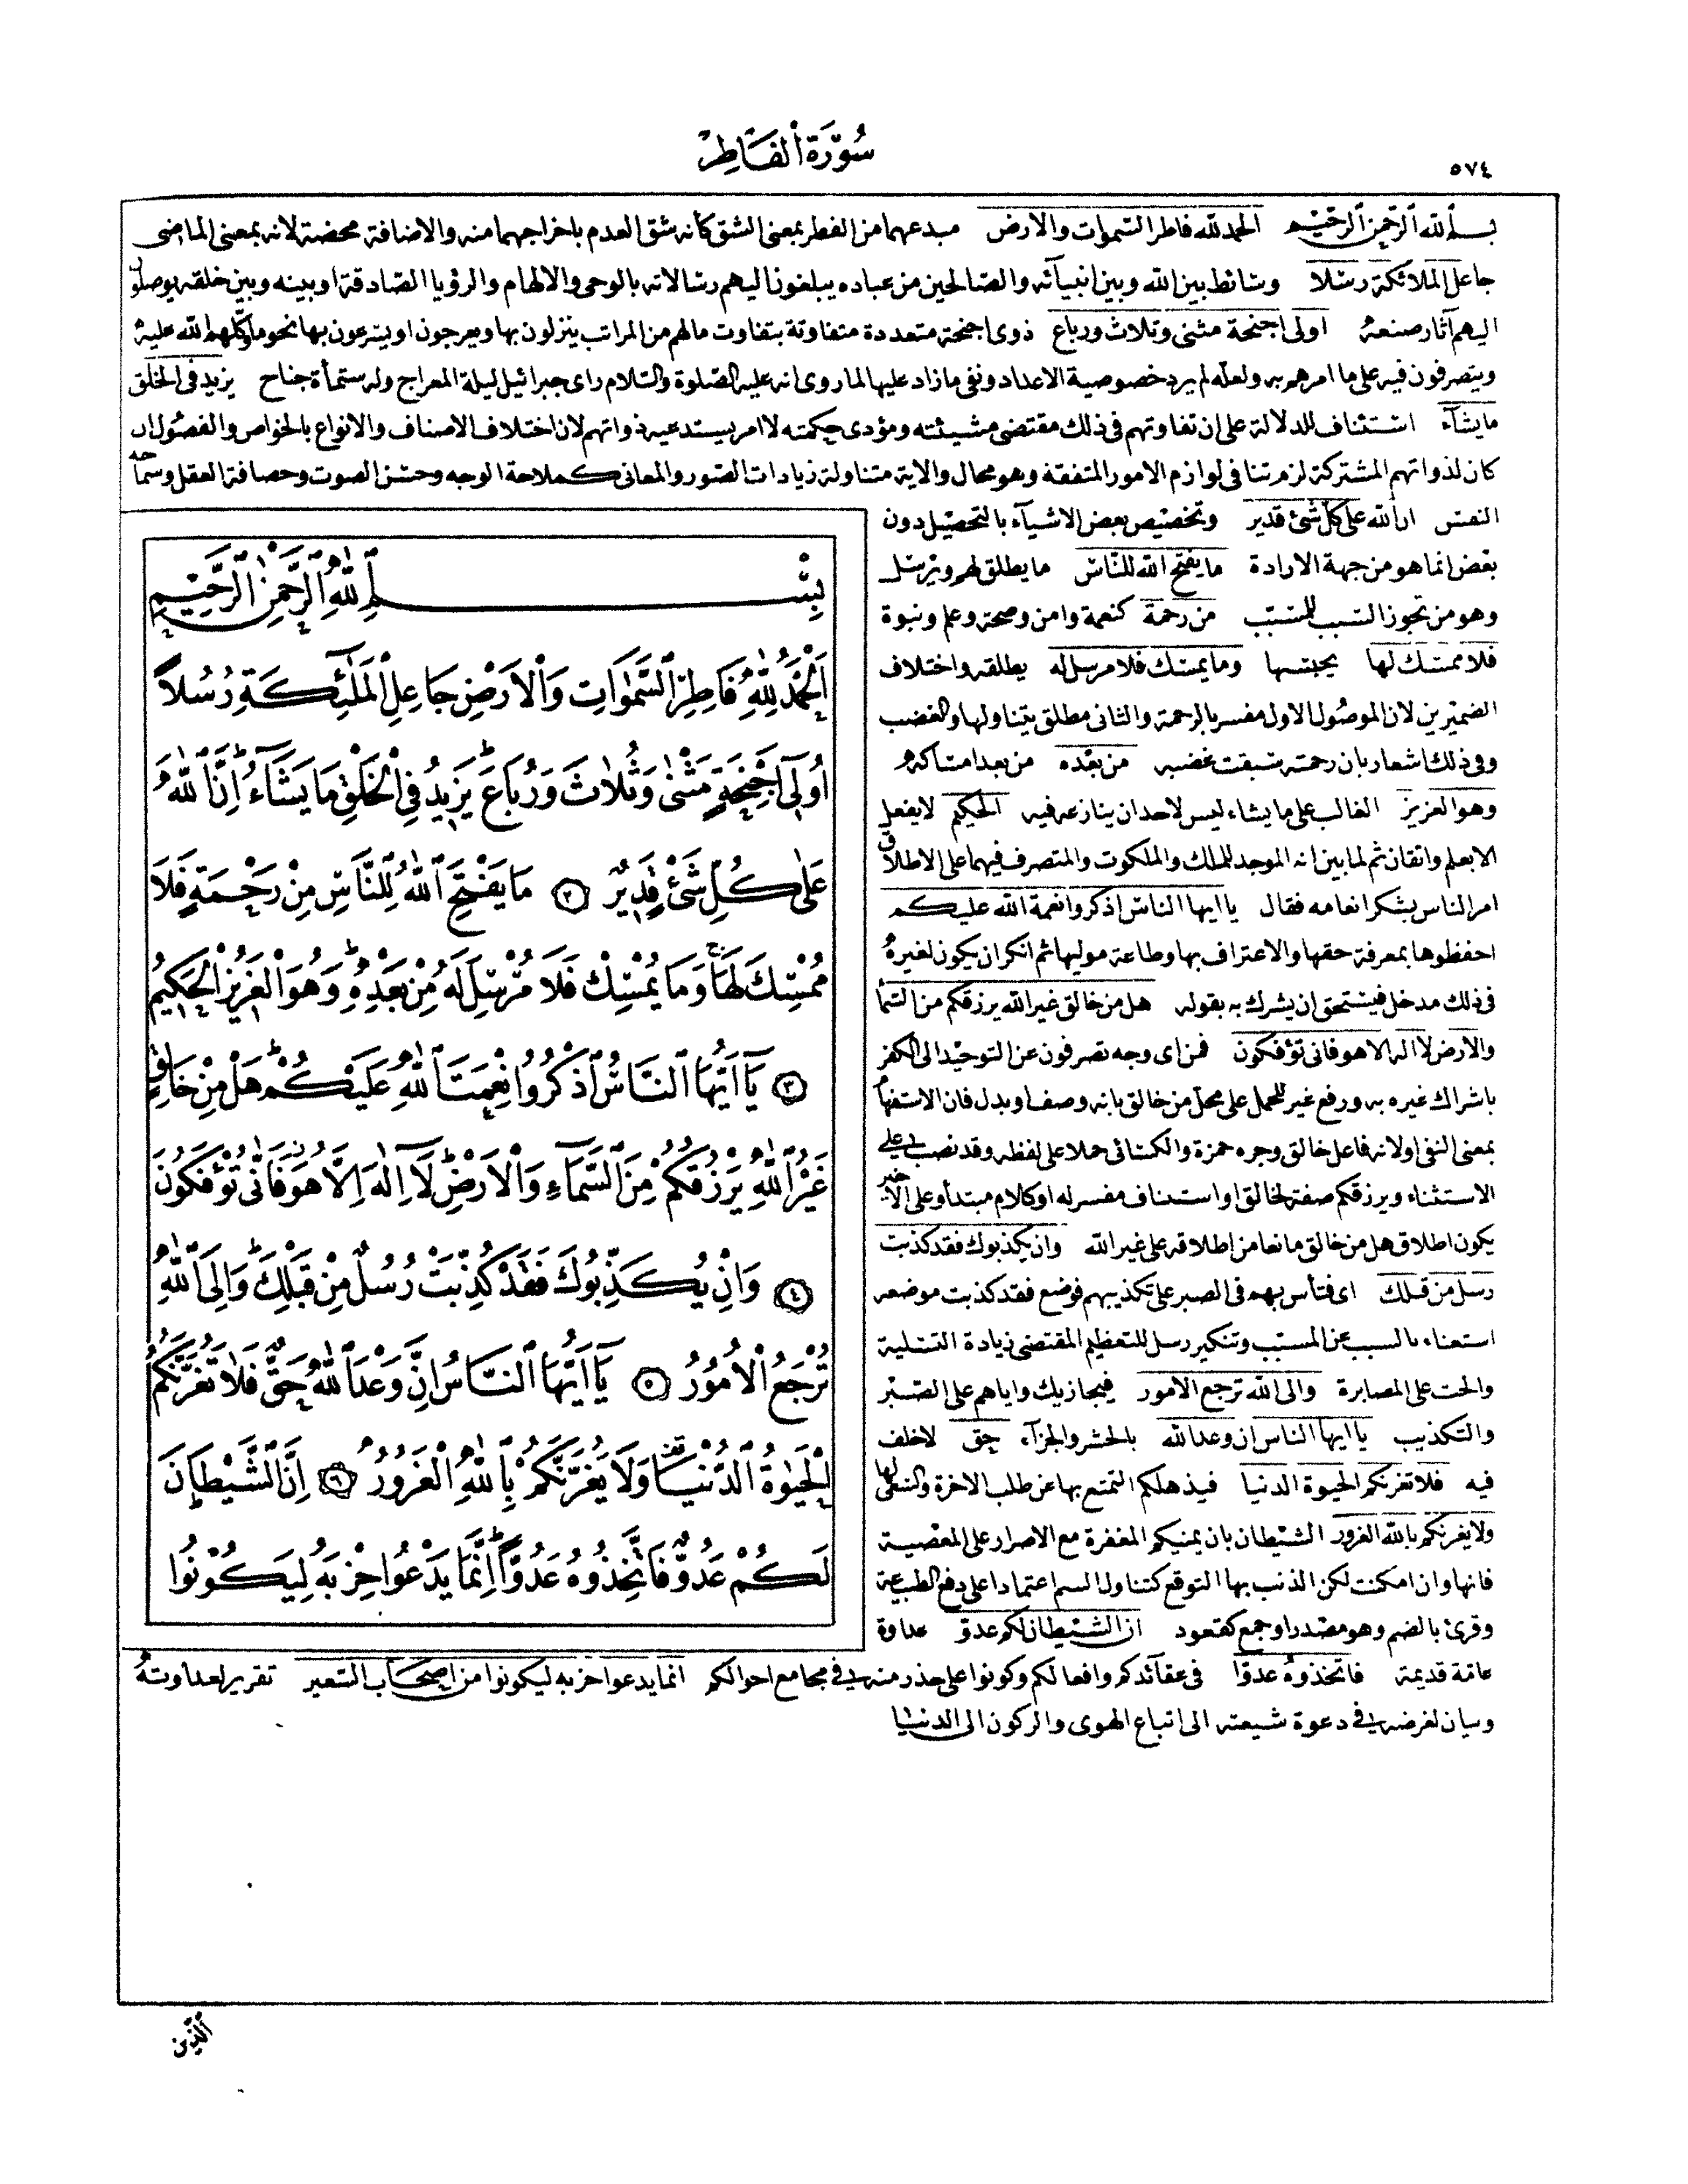 ٥٧٤
سُورَةُ الفَاطِر
بسم الله الرحمن الرحيم الحمد لله فاطر السموات والارض مبدعهما من الفطر بمعنى الشق كأنه شق العدم باخراجهما منه والاضافة محضة لانه بمعنى الماضى
جاعل الملائكة رسلا وسائط بين الله وبين انبيائه والصالحين من عباده يبلغون اليهم رسالاته بالوحى والالهام والرؤيا الصادقة او بينه وبين خلقه يوصلون
اليهم آثار صنعه اولى اجنحة مثنى وثلاث ورباع ذوى اجنحة متعددة متفاوتة بتفاوت مالهم من المراتب ينزلون بها ويعرجون او يسرعون بها نحو ما وكلهم الله عليه
ويتصرفون فيه على ما امرهم به ولعله لم يرد خصوصية الاعداد ونفى ما زاد عليها لما روى انه عليه الصلوة والسلام راى جبرائيل ليلة المعراج وله ستمأة جناح يزيد فى الخلق
ما يشآء استئناف للدلالة على ان تفاوتهم فى ذلك مقتضى مشيئته ومؤدى حكمته لا امر يستدعيه ذواتهم لان اختلاف الاصناف والانواع بالخواص والفصول ان
كان لذواتهم المشتركة لزم تنافى لوازم الامور المتفقة وهو محال والاية متناولة زيادات الصور والمعانى كملاحة الوجه وحسن الصوت وحصافة العقل وسماحة
النفس ان الله على كل شئ قدير وتخصيص بعض الاشيآء بالتحصيل دون
بعض انما هو من جهة الارادة ما يفتح الله للناس ما يطلق لهم ويرسل
وهو من تجوز السبب للمسبب من رحمة كنعمة وامن وصحة وعلم ونبوة
فلا ممسك لها يحبسها وما يمسك فلا مرسل له يطلقه واختلاف
الضميرين لان الموصول الاول مفسر بالرحمة والثانى مطلق يتناولها والغضب
وفى ذلك اشعار بان رحمته سبقت غضبه من بعده من بعد امساكه
وهو العزيز الغالب على ما يشاء ليس لاحد ان ينازعه فيه الحكيم لا يفعل
الا بعلم واتقان ثم لما بين انه الموجد للملك والملكوت والمتصرف فيهما على الاطلاق
امر الناس بشكر انعامه فقال يا ايها الناس اذكروا نعمة الله عليكم
احفظوها بمعرفة حقها والاعتراف بها وطاعة موليها ثم انكر ان يكون لغيره
فى ذلك مدخل فيستحق ان يشرك به بقوله هل من خالق غير الله يرزقكم من السمآ
والارض لا اله الا هو فانى تؤفكون فمن اى وجه تصرفون عن التوحيد الى الكفر
باشراك غيره به ورفع غير للحمل على محل من خالق بانه وصف او بدل فان الاستفهام
بمعنى النفى او لانه فاعل خالق وجره حمزة والكسائى حملا على لفظه وقد نصب على
الاستثناء ويرزقكم صفة لخالق او استئناف مفسر له او كلام مبتدأ وعلى الاخير
يكون اطلاق هل من خالق مانعا من اطلاقه على غير الله وان يكذبوك فقد كذبت
رسل من قبلك اى فتأس بهم فى الصبر على تكذيبهم فوضع فقد كذبت موضعه
استغناء بالسبب عن المسبب وتنكير رسل للتعظيم المقتضى زيادة التسلية
والحث على المصابرة والى الله ترجع الامور فيجازيك واياهم على الصبر
والتكذيب يا ايها الناس ان وعد الله بالحشر والجزآء حق لا خلف
فيه فلا تغرنكم الحيوة الدنيا فيذهلكم التمتع بها عن طلب الاخرة والسعى لها
ولا يغرنكم بالله الغرور الشيطان بان يمنيكم المغفرة مع الاصرار على المعصية
فانها وان امكنت لكن الذنب بها التوقع كتناول السم اعتمادا على دفع الطبيعة
وقرئ بالضم وهو مصدر او جمع كقعود ان الشيطان لكم عدو عداوة
عامة قديمة فاتخذوه عدوا فى عقآئدكم وافعالكم وكونوا على حذر منه فى مجامع احوالكم انما يدعوا حزبه ليكونوا من اصحاب السعير تقرير لعداوته
وبيان لغرضه فى دعوة شيعته الى اتباع الهوى والركون الى الدنيا
بِسْمِ اللّٰهِ الرَّحْمٰنِ الرَّحِيمِ
اَلْحَمْدُ لِلّٰهِ فَاطِرِ السَّمٰوَاتِ وَالْاَرْضِ جَاعِلِ الْمَلٰٓئِكَةِ رُسُلاً
اُولِىٓ اَجْنِحَةٍ مَثْنٰى وَثُلَاثَ وَرُبَاعَ يَزِيدُ فِى الْخَلْقِ مَا يَشَٓاءُ اِنَّ اللّٰهَ
عَلٰى كُلِّ شَىْءٍ قَدِيرٌ ٢ مَا يَفْتَحِ اللّٰهُ لِلنَّاسِ مِنْ رَحْمَةٍ فَلَا
مُمْسِكَ لَهَا وَمَا يُمْسِكْ فَلَا مُرْسِلَ لَهُ مِنْ بَعْدِهِ وَهُوَ الْعَزِيزُ الْحَكِيمُ
٣ يَٓا اَيُّهَا النَّاسُ اذْكُرُوا نِعْمَتَ اللّٰهِ عَلَيْكُمْ هَلْ مِنْ خَالِقٍ
غَيْرُ اللّٰهِ يَرْزُقُكُمْ مِنَ السَّمَٓاءِ وَالْاَرْضِ لَٓا اِلٰهَ اِلَّا هُوَ فَاَنّٰى تُؤْفَكُونَ
٤ وَاِنْ يُكَذِّبُوكَ فَقَدْ كُذِّبَتْ رُسُلٌ مِنْ قَبْلِكَ وَاِلَى اللّٰهِ
تُرْجَعُ الْاُمُورُ ٥ يَٓا اَيُّهَا النَّاسُ اِنَّ وَعْدَ اللّٰهِ حَقٌّ فَلَا تَغُرَّنَّكُمُ
الْحَيٰوةُ الدُّنْيَا وَلَا يَغُرَّنَّكُمْ بِاللّٰهِ الْغَرُورُ ٦ اِنَّ الشَّيْطَانَ
لَكُمْ عَدُوٌّ فَاتَّخِذُوهُ عَدُوًّا اِنَّمَا يَدْعُوا حِزْبَهُ لِيَكُونُوا
الَّذِين